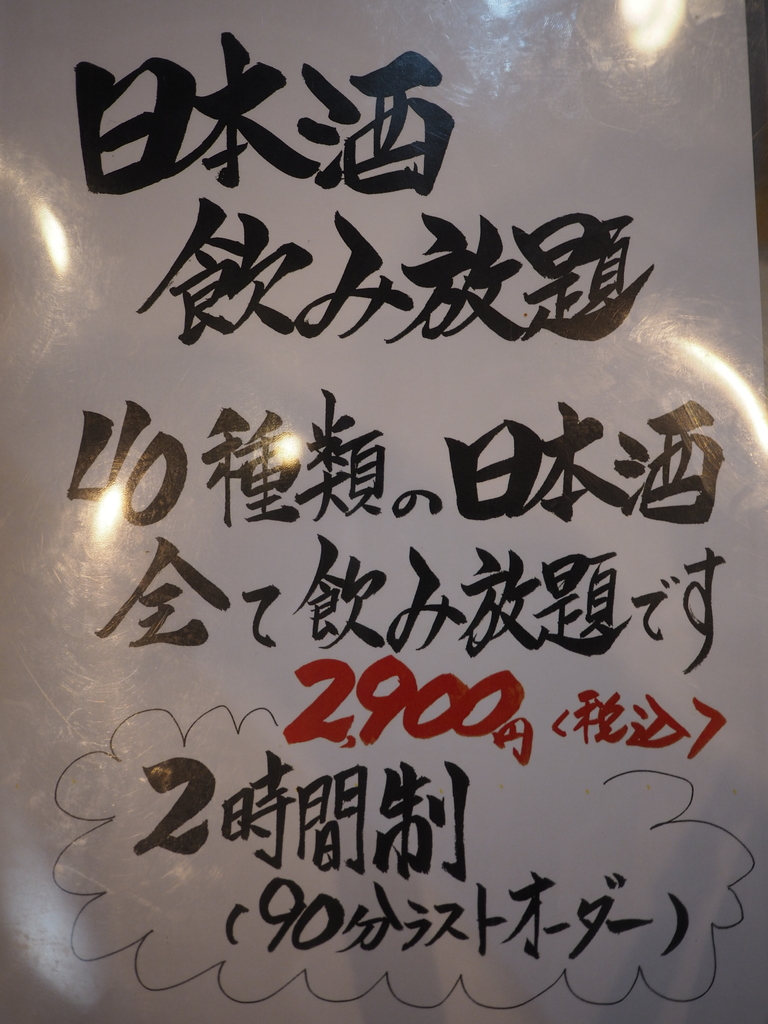 日本酒
飲み放題
40種類の日本酒
全て飲み放題です
2,900円〈税込〉
2時間制
(90分ラストオーダー)